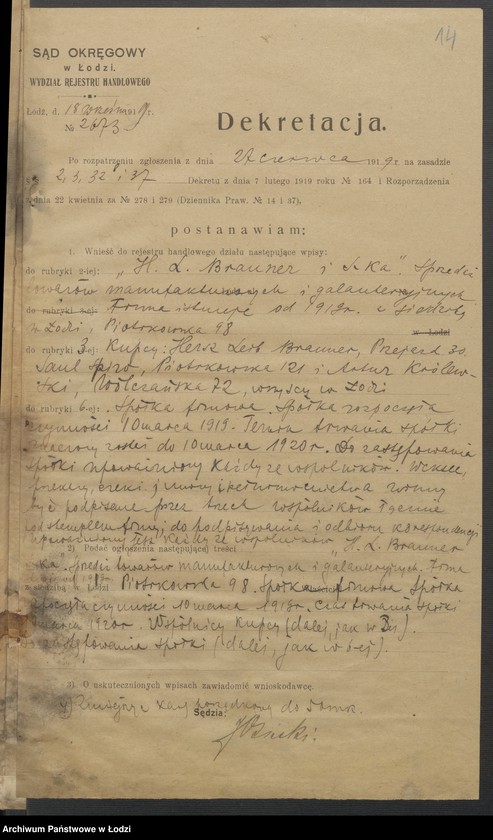 14
SĄD OKRĘGOWY
w Łodzi,
WYDZIAŁ REJESTRU HANDLOWEGO
Łódź, d. 18 września 1919 r.
№ 2673
Dekretacja.
Po rozpatrzeniu zgłoszenia z dnia 27 czerwca 1919 r. na zasadzie
2, 3, 32 i 37 Dekretu z dnia 7 lutego 1919 roku № 164 i Rozporządzenia
z dnia 22 kwietnia za № 278 i 279 (Dziennika Praw. № 14 i 37),
postanawiam:
1. Wnieść do rejestru handlowego działu następujące wpisy:
do rubryki 2-iej: „H. L. Brauner i S-ka". Sprzedaż
towarów manufakturowych i galanteryjnych
do rubryki Firma istnieje od 1919r. z siedzibą
w Łodzi, Piotrkowska 98
w Łodzi
do rubryki 3ej: Kupcy: Hersz Leib Brauner, Przejazd 30,
Saul Spiro, Piotrkowska 121 i Artur Królew-
ski, Wólczańska 72, wszyscy w Łodzi
do rubryki 6-ej: Spółka firmowa. Spółka rozpoczęła
czynności 10 marca 1919. Termin trwania spółki
do 10 marca 1920r. Do zastępowania
spółki upoważniony każdy ze wspólników. Weksle,
czeki, umowy i pełnomocnictwa winny
być podpisane przez trzech wspólników łącznie
pod stemplem firmy; do podpisywania i odbioru korespondencji
upoważniony jest każdy ze wspólników
2) Podać ogłoszenia następującej treści „H. L. Brauner
i S-ka. Sprzedaż towarów manufakturowych i galanteryjnych. Firma
Piotrkowska 98. Spółka firmowa Spółka
rozpoczęła czynności 10 marca 1919r. Czas trwania spółki
marca 1920r. Wspólnicy Kupcy (dalej, jak w 3ej).
zastępowania spółki (dalej, jak w 6ej).
3) O uskutecznionych wpisach zawiadomić wnioskodawcę.
do
Sędzia:
Archiwum Państwowe w Łodzi